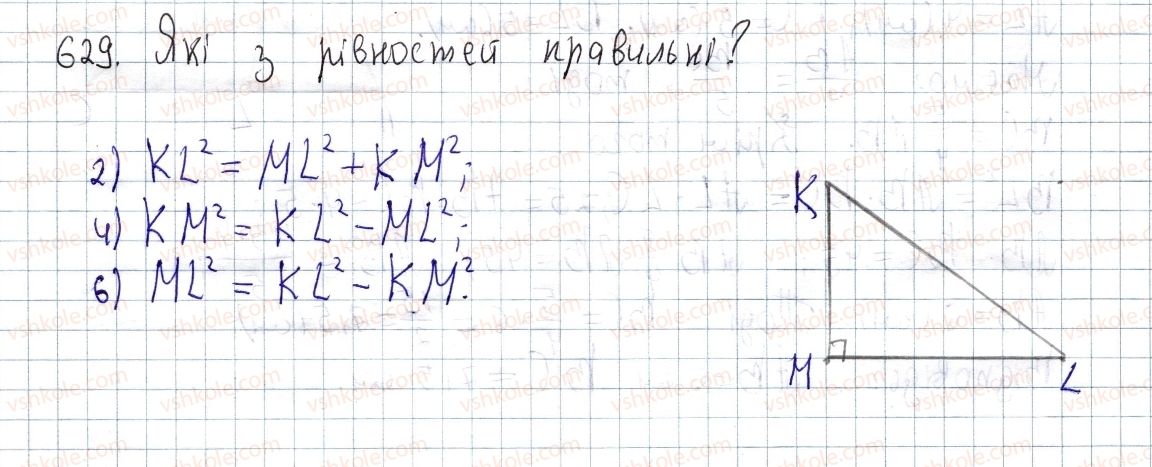 629. Які з рівностей правильні?
2) KL² = ML² + KM²;
4) KM² = KL² - ML²;
6) ML² = KL² - KM².
K
M
L
vshkole.com